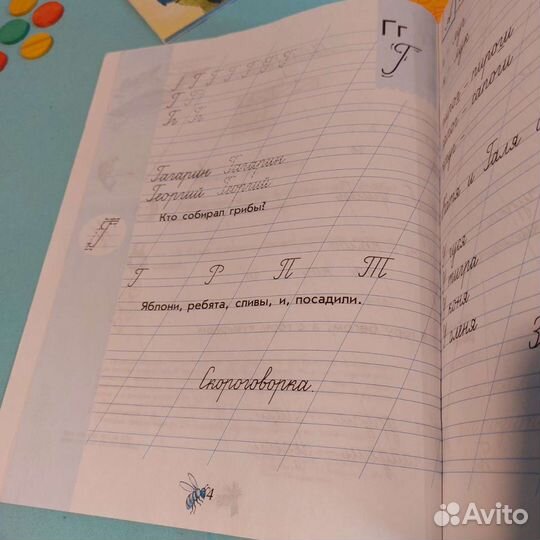 Гг
Г
Г Г Г Г Г Г Г
Г Г
Гагарин Гагарин
Георгий Георгий
Кто собирал грибы?
Г
Г Р П Т
Яблони, ребята, сливы, и, посадили.
Скороговорка.
4
пироги
сапоги
и Галя
гуся
тигра
коня
оленя
З
Avito